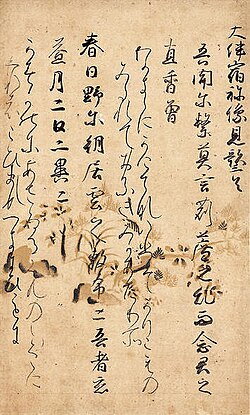 大伴宿祢像見歌三首
吾聞尓繋莫言刈薦之乱而念君之
直香曽
かりこもの
みたれておもふきみかたゝかそ
春日野尓朝居雲之敷布二吾者戀
益月二日二異二
かすかのにあさゐるくもの
われはこひますつきにひに